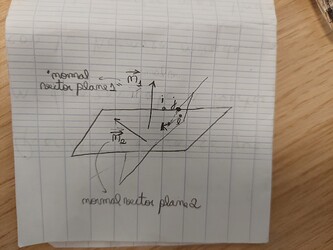 normal
vector plane 1
n₁
n₂
normal vector plane 2